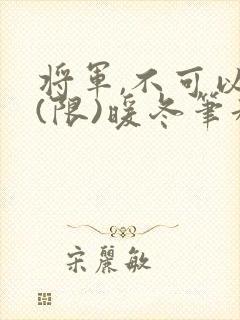 將軍,不可以
(限)暖冬筆
宋麗敏